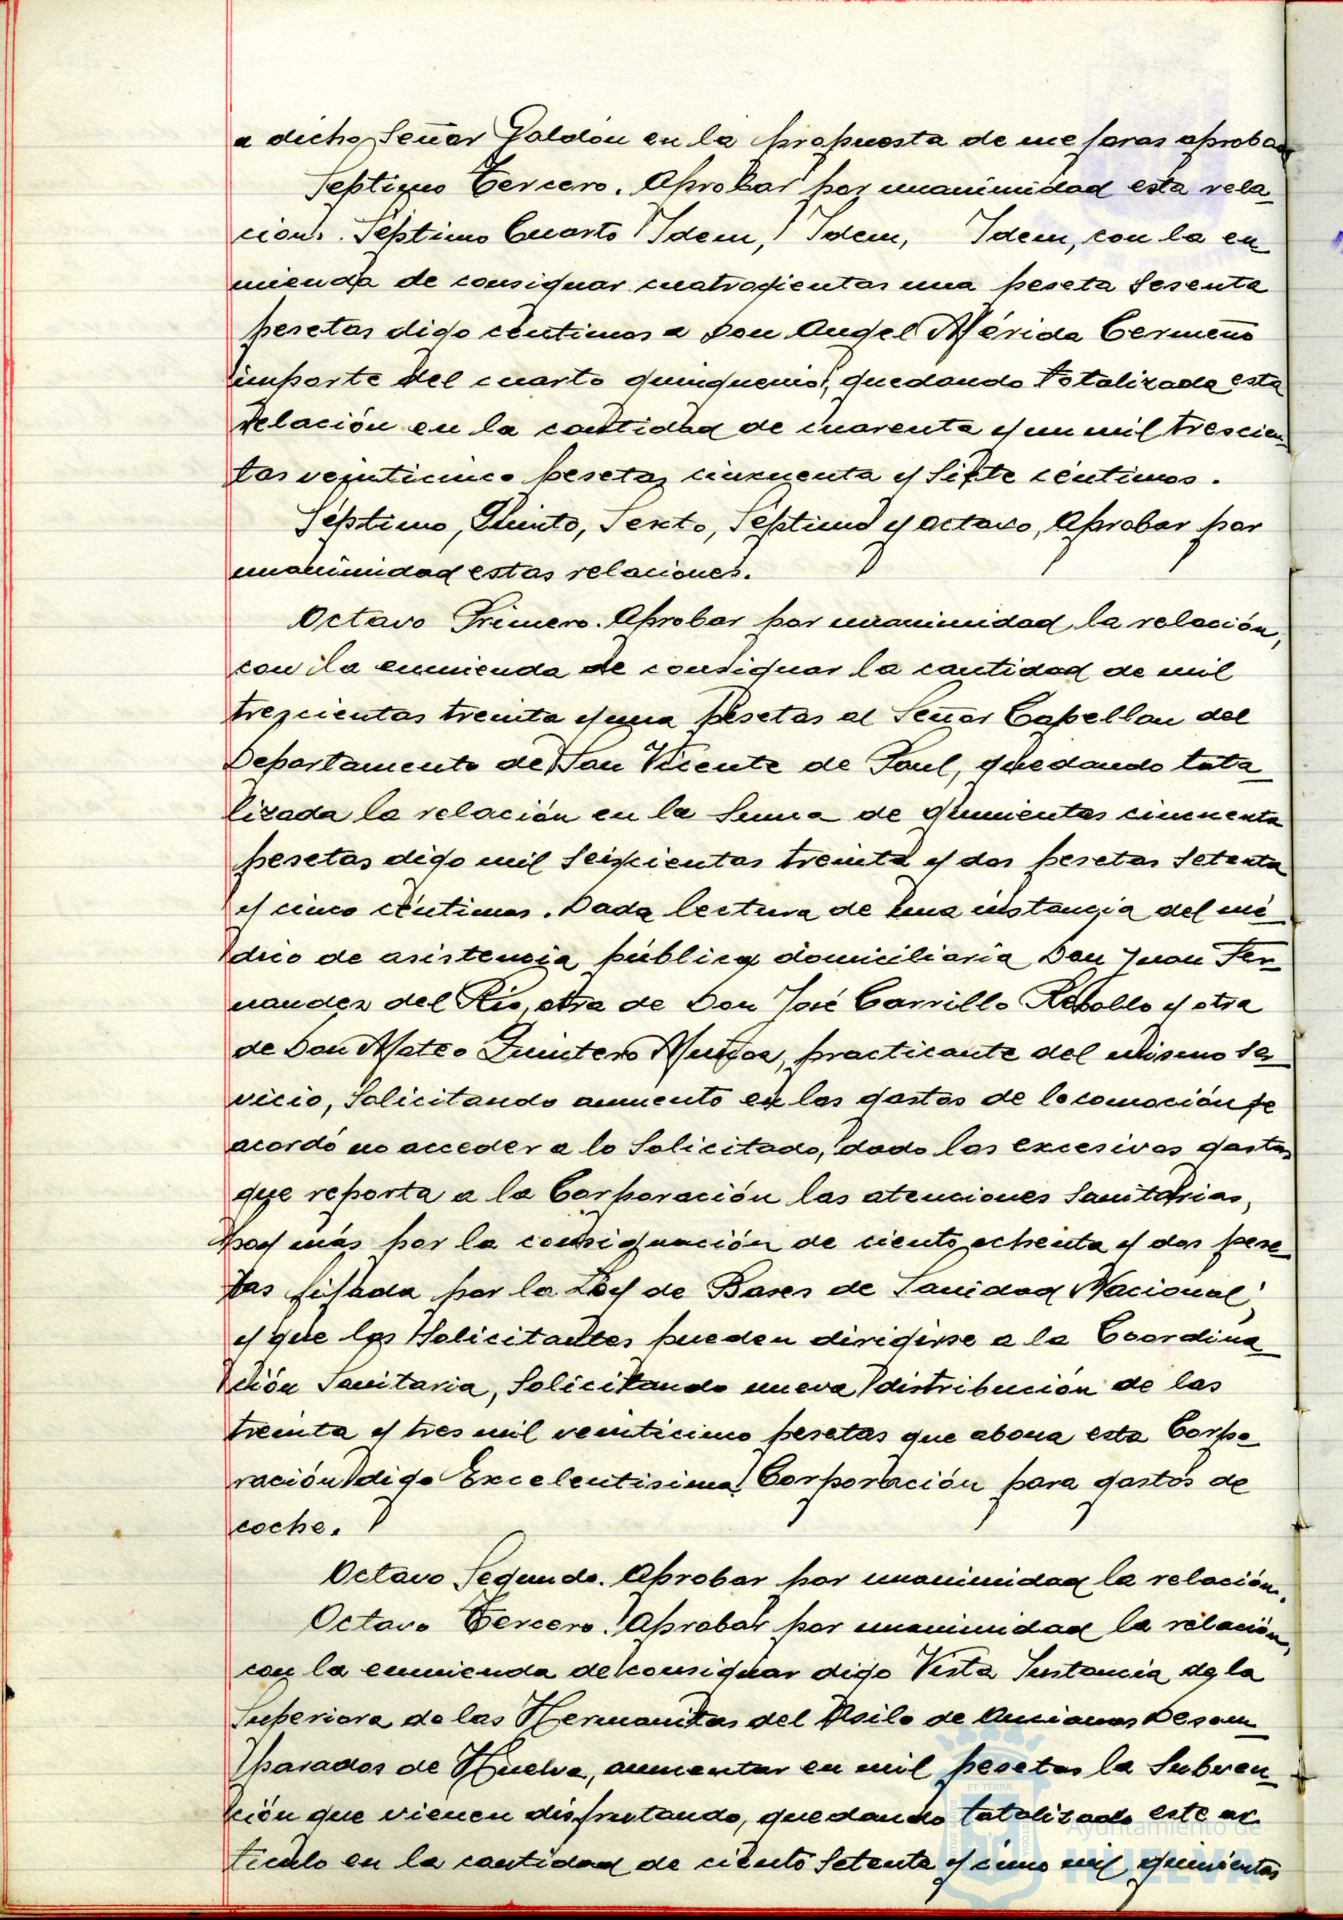 a dicho Señor Galdón en la propuesta de mejoras aproba
Septimo Tercero. Aprobar por unanimidad esta rela-
ción. Séptimo Cuarto Idem, Idem, Idem, con la en-
mienda de consignar cuatrocientas una peseta sesenta
pesetas digo centimos a Don Angel Mérida Cermeño
importe del cuarto quinquenio, quedando totalizada esta
relación en la cantidad de cuarenta y un mil trescien-
tas veinticinco pesetas cincuenta y siete céntimos.
Séptimo, Quinto, Sexto, Séptimo y octavo, Aprobar por
unanimidad estas relaciones.
Octavo Primero. Aprobar por unanimidad la relación,
con la enmienda de consignar la cantidad de mil
trescientas treinta y una pesetas al Señor Capellan del
Departamento de San Vicente de Paul, quedando tota-
lizada la relación en la suma de quinientas cincuenta
pesetas digo mil seiscientas treinta y dos pesetas setenta
y cinco céntimos. Dada lectura de una instancia del mé-
dico de asistencia pública domiciliaria Don Juan Fer-
nandez del Río, otra de Don José Carrillo Rebollo y otra
de Don Mateo Quintero Muñoz, practicante del mismo ser-
vicio, solicitando aumento en los gastos de locomoción se
acordó no acceder a lo solicitado, dado los excesivos gastos
que reporta a la Corporación las atenciones sanitarias,
hoy más por la consignación de ciento ochenta y dos pese-
tas fijada por la Ley de Bases de Sanidad Nacional,
y que los solicitantes pueden dirigirse a la Coordina-
ción Sanitaria, solicitando nueva distribución de las
treinta y tres mil veinticinco pesetas que abona esta Corpo-
ración digo Excelentisima Corporación para gastos de
coche.
Octavo Segundo. Aprobar por unanimidad la relación.
Octavo Tercero. Aprobar por unanimidad la relación,
con la enmienda de consignar digo Vista Instancia de la
Superiora de las Hermanitas del Asilo de Ancianos Desam-
parados de Huelva, aumentar en mil pesetas la subven-
ción que vienen disfrutando, quedando totalizado este ar-
ticulo en la cantidad de ciento setenta y cinco mil quinientas
Ayuntamiento de
HUELVA